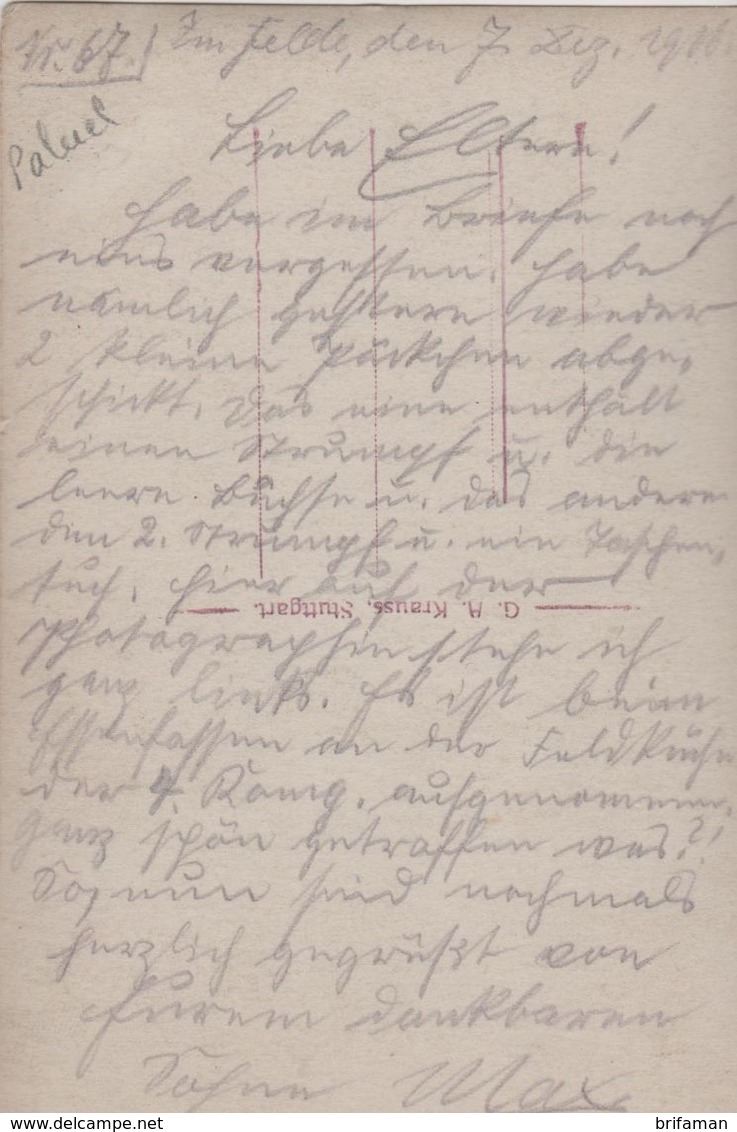 Nr. 67. Im Felde, den 7. Dez. 1916.
Liebe Eltern!
Habe im Briefe noch
eins vergessen, habe
nämlich gestern wieder
2 kleine Päckchen abge-
schickt. Das eine enthält
einen Strumpf u. die
leere Büchse u. das andere
den 2. Strumpf u. ein Taschen-
tuch. Hier auf der
G. A. Krauss, Stuttgart.
Photographie stehe ich
ganz links. Es ist beim
Essenfassen an der Feldküche
der 4. Komp. aufgenommen.
Ganz schön getroffen was?!
So, nun seid nochmals
herzlich gegrüßt von
Eurem dankbaren
Sohne Max.
brifaman